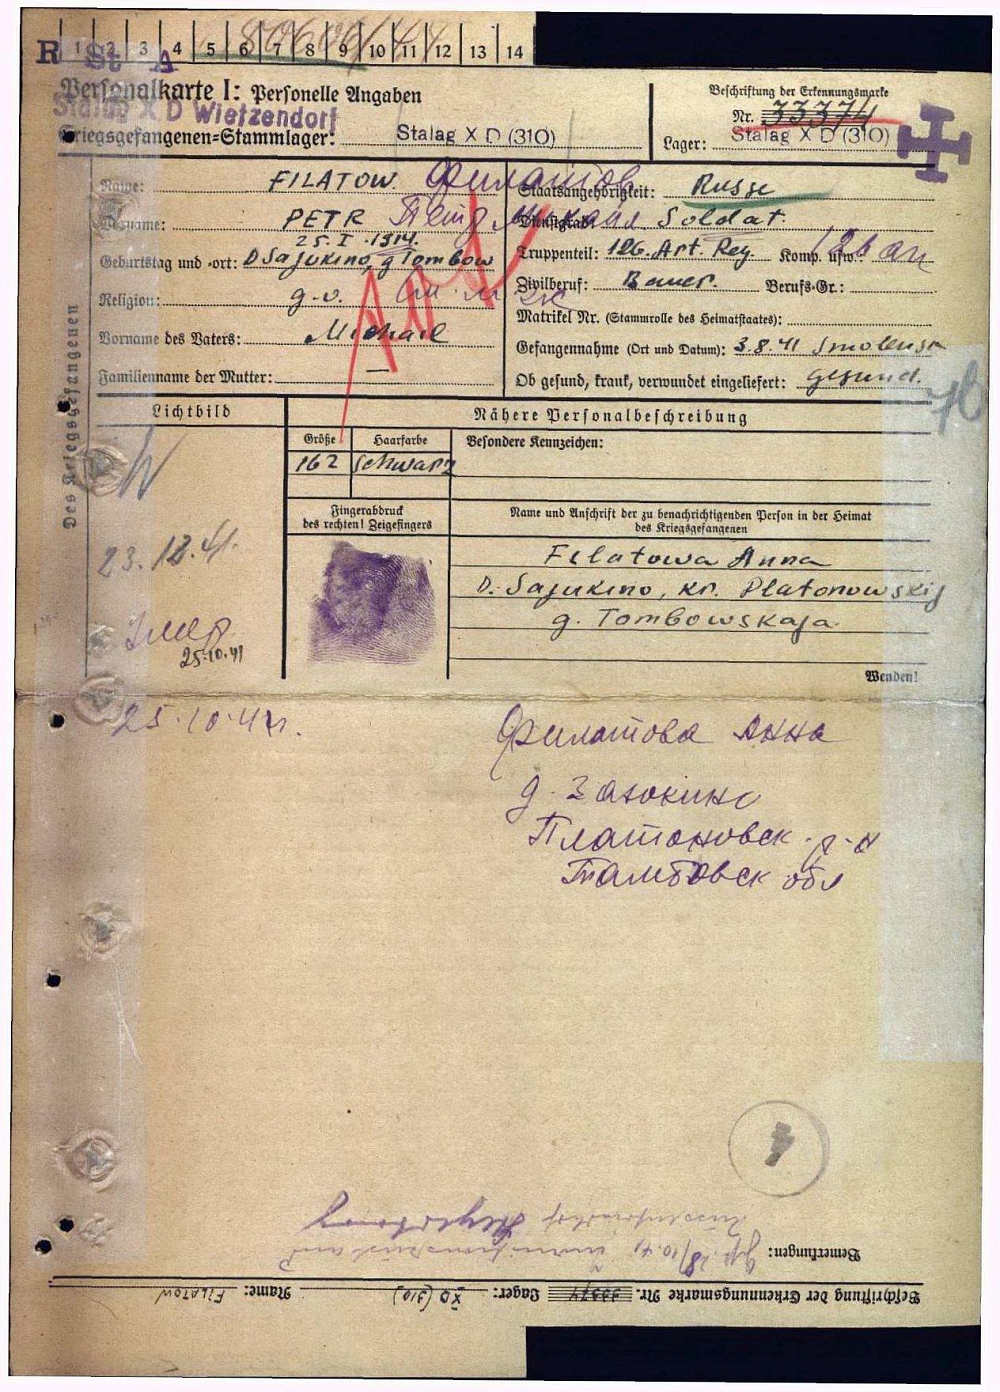 R St A
1 2 3 4 5 6 7 8 9 10 11 12 13 14
Personalkarte I: Personelle Angaben
Stalag X D Wietzendorf
Kriegsgefangenen-Stammlager: Stalag X D (310)
Beschriftung der Erkennungsmarke
Nr. 33374
Lager: Stalag X D (310)
Des Kriegsgefangenen
Name: FILATOW Филатов
Vorname: PETR Петр Михаил
Geburtstag und -ort: 25.I.1914. D Sajukino, g Tombow
Religion: g.o.
Vorname des Vaters: Michael
Familienname der Mutter: —
Staatsangehörigkeit: Russe
Dienstgrad: Soldat
Truppenteil: 126. Art. Reg. Komp. usw.: 126 ап
Zivilberuf: Bauer. Berufs-Gr.:
Matrikel Nr. (Stammrolle des Heimatstaates):
Gefangennahme (Ort und Datum): 3.8.41 Smolensk
Ob gesund, krank, verwundet eingeliefert: gesund.
Lichtbild
Nähere Personalbeschreibung
Größe Haarfarbe Besondere Kennzeichen:
162 schwarz
Fingerabdruck
des rechten! Zeigefingers
Name und Anschrift der zu benachrichtigenden Person in der Heimat
des Kriegsgefangenen
Filatowa Anna
D. Sajukino, kr. Platonowskij
g. Tombowskaja.
Wenden!
23.12.41.
Умер
25.10.41
25.10.41г.
Филатова Анна
д. Заюкино
Платоновск. р-н
Тамбовск обл
Bemerkungen:
Beschriftung der Erkennungsmarke Nr. 33374 Lager: XD (310) Name: FILATOW